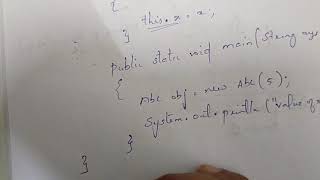 {
} this.x = x;
public static void main(String ays
{
Abc obj = new Abc(5);
System.out.println("value of
}
}